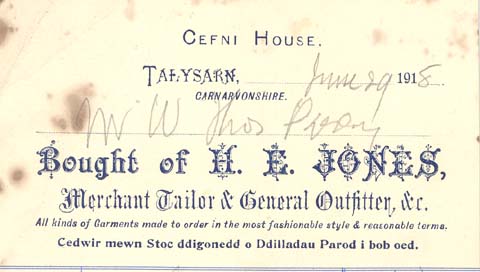 CEFNI HOUSE.
TALYSARN, June 29 1918.
CARNARVONSHIRE.
Mr W Thos Parry
Bought of H. E. JONES,
Merchant Tailor & General Outfitter, &c.
All kinds of Garments made to order in the most fashionable style & reasonable terms.
Cedwir mewn Stoc ddigonedd o Ddilladau Parod i bob oed.